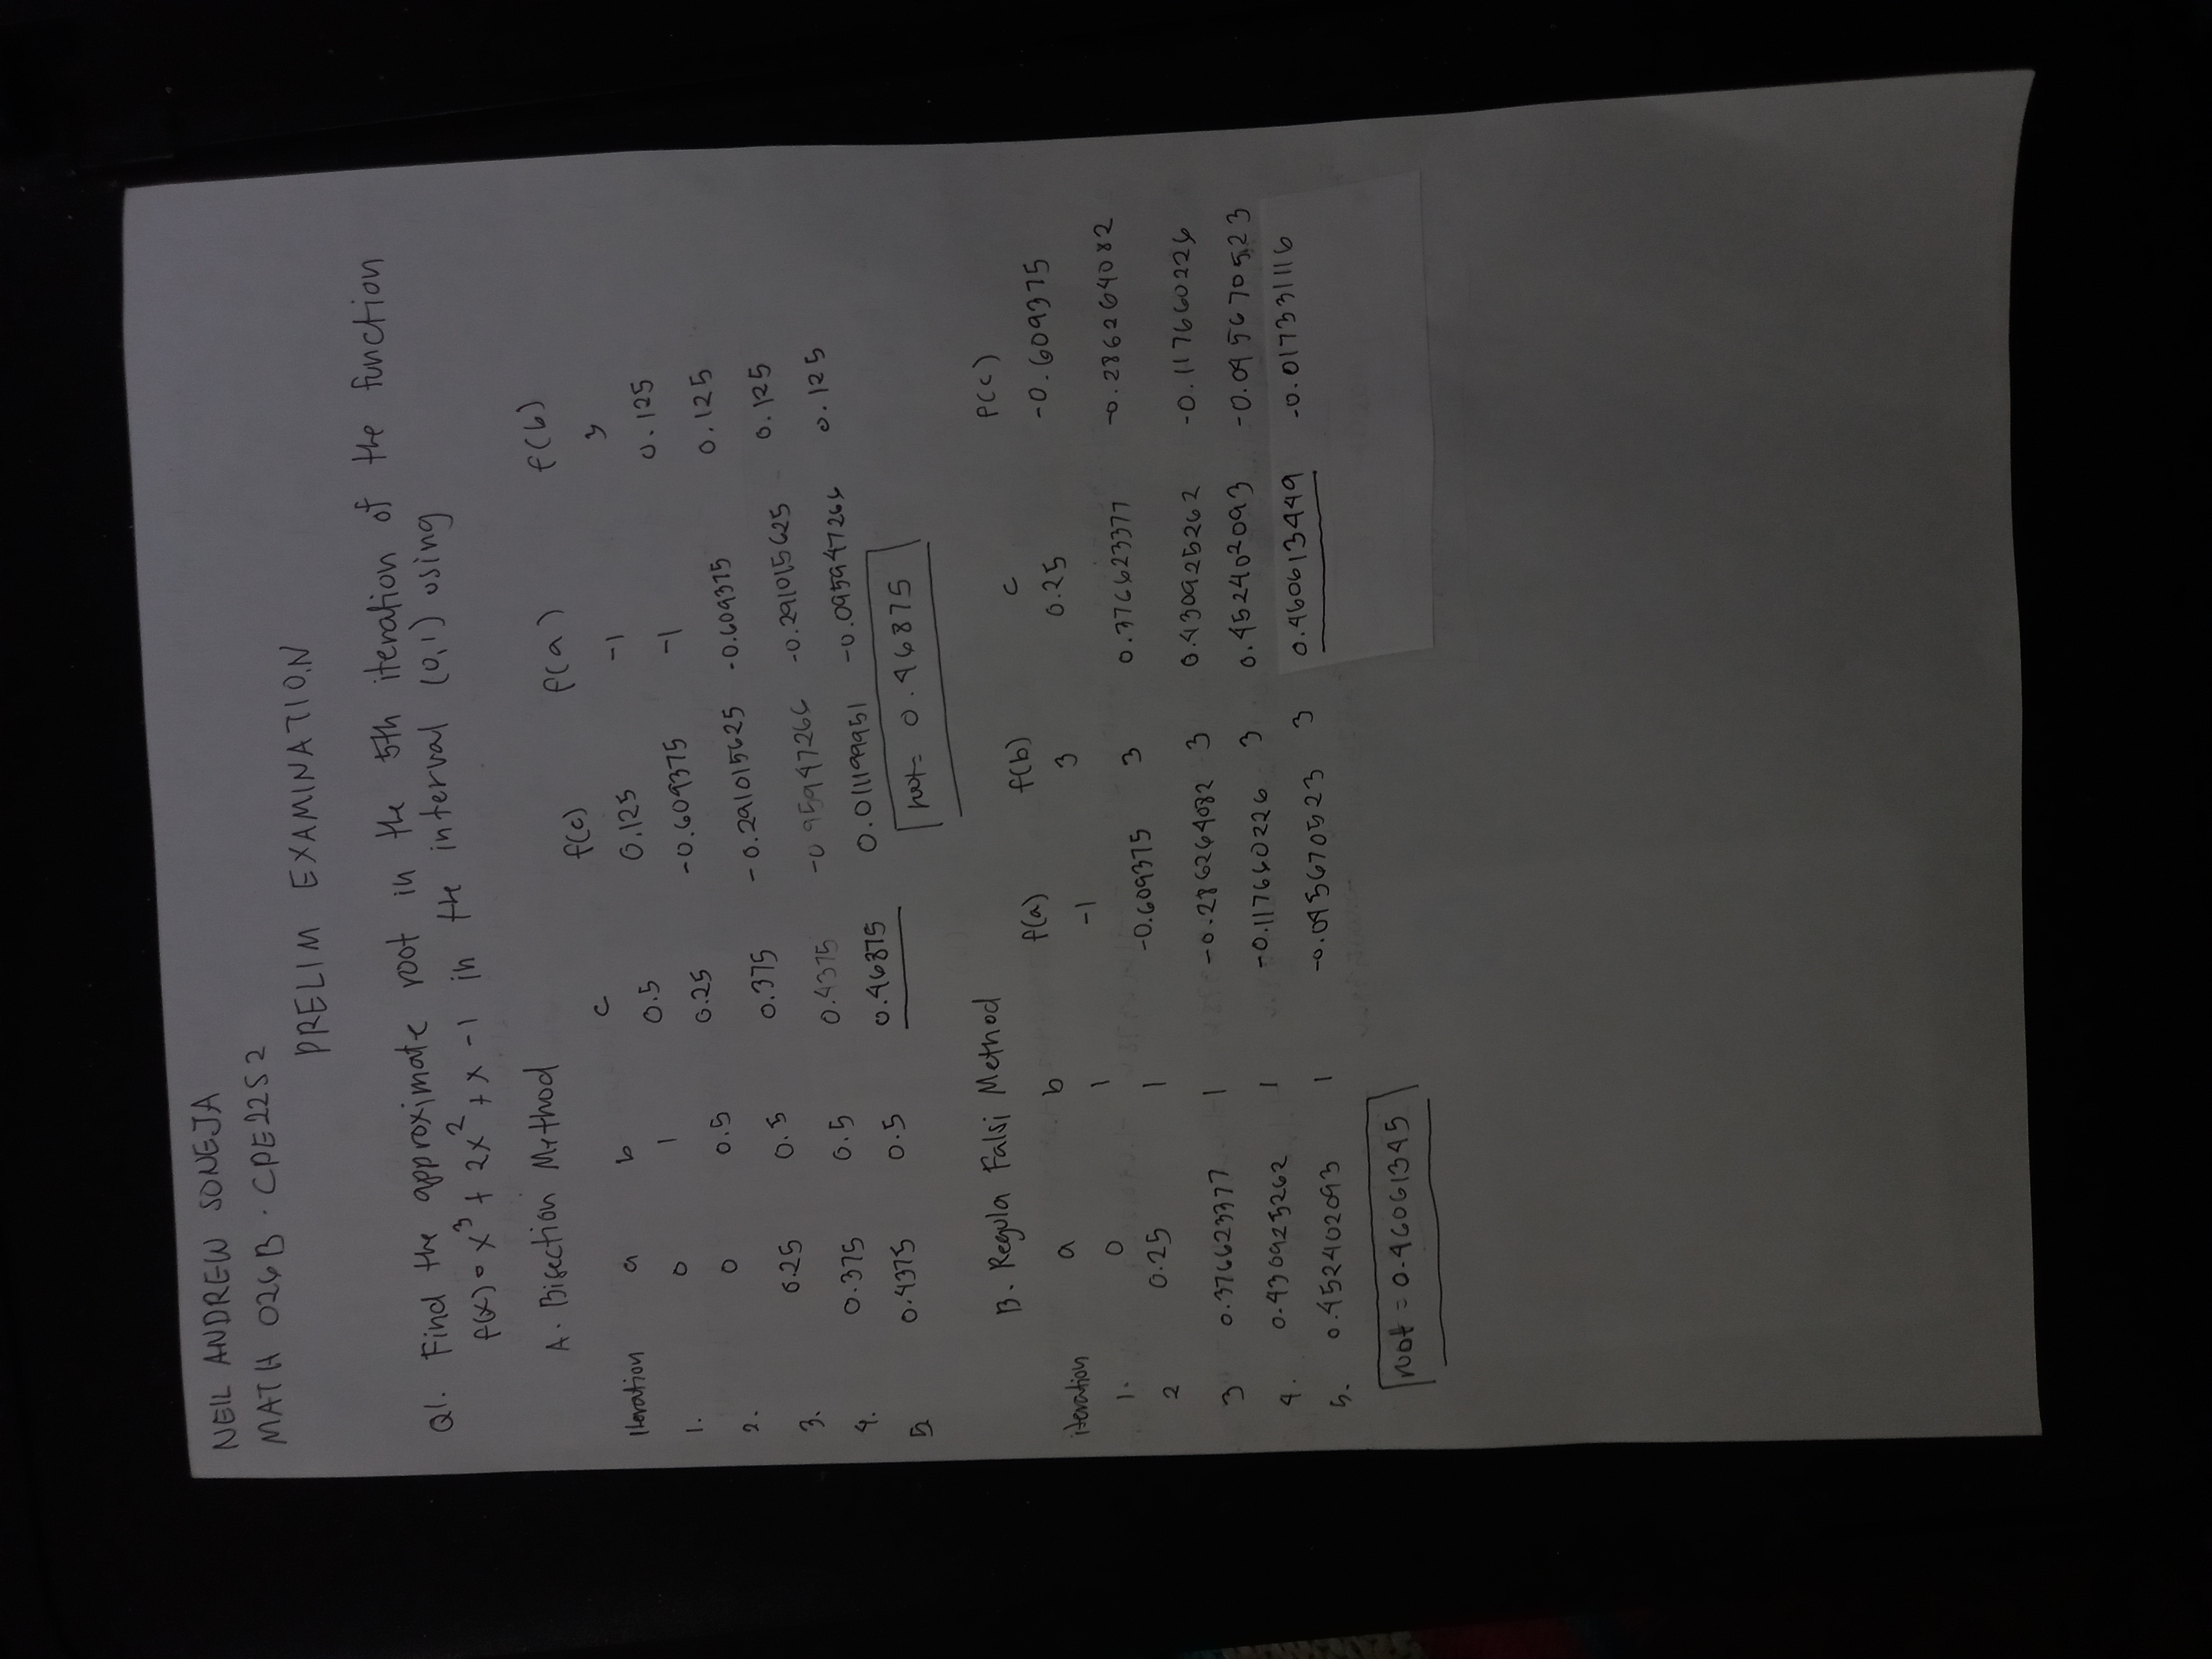 NEIL ANDREW SONEJA
MATH 026B · CPE22S2
PRELIM EXAMINATION
Q1. Find the approximate root in the 5th iteration of the function
f(x) = x³ + 2x² + x - 1 in the interval (0,1) using
A. Bisection Method
Iteration a b c f(c) f(a) f(b)
1. 0 1 0.5 0.125 -1 3
2. 0 0.5 0.25 -0.609375 -1 0.125
3. 0.25 0.5 0.375 -0.291015625 -0.609375 0.125
4. 0.375 0.5 0.4375 -0 95947266 -0.291015625 0.125
5. 0.4375 0.5 0.46875 0.011199951 -0.095947266 0.125
root = 0.46875
B. Regula Falsi Method
iteration a b f(a) f(b) c f(c)
1. 0 1 -1 3 0.25 -0.609375
2 0.25 1 -0.609375 3 0.376623377 -0.286264082
3 0.376623377 1 -0.286264082 3 0.430925262 -0.117660226
4. 0.430925262 1 -0.117660226 3 0.452402093 -0.045670523
5. 0.452402093 1 -0.045670523 3 0.460613449 -0.017331116
root = 0.46061345